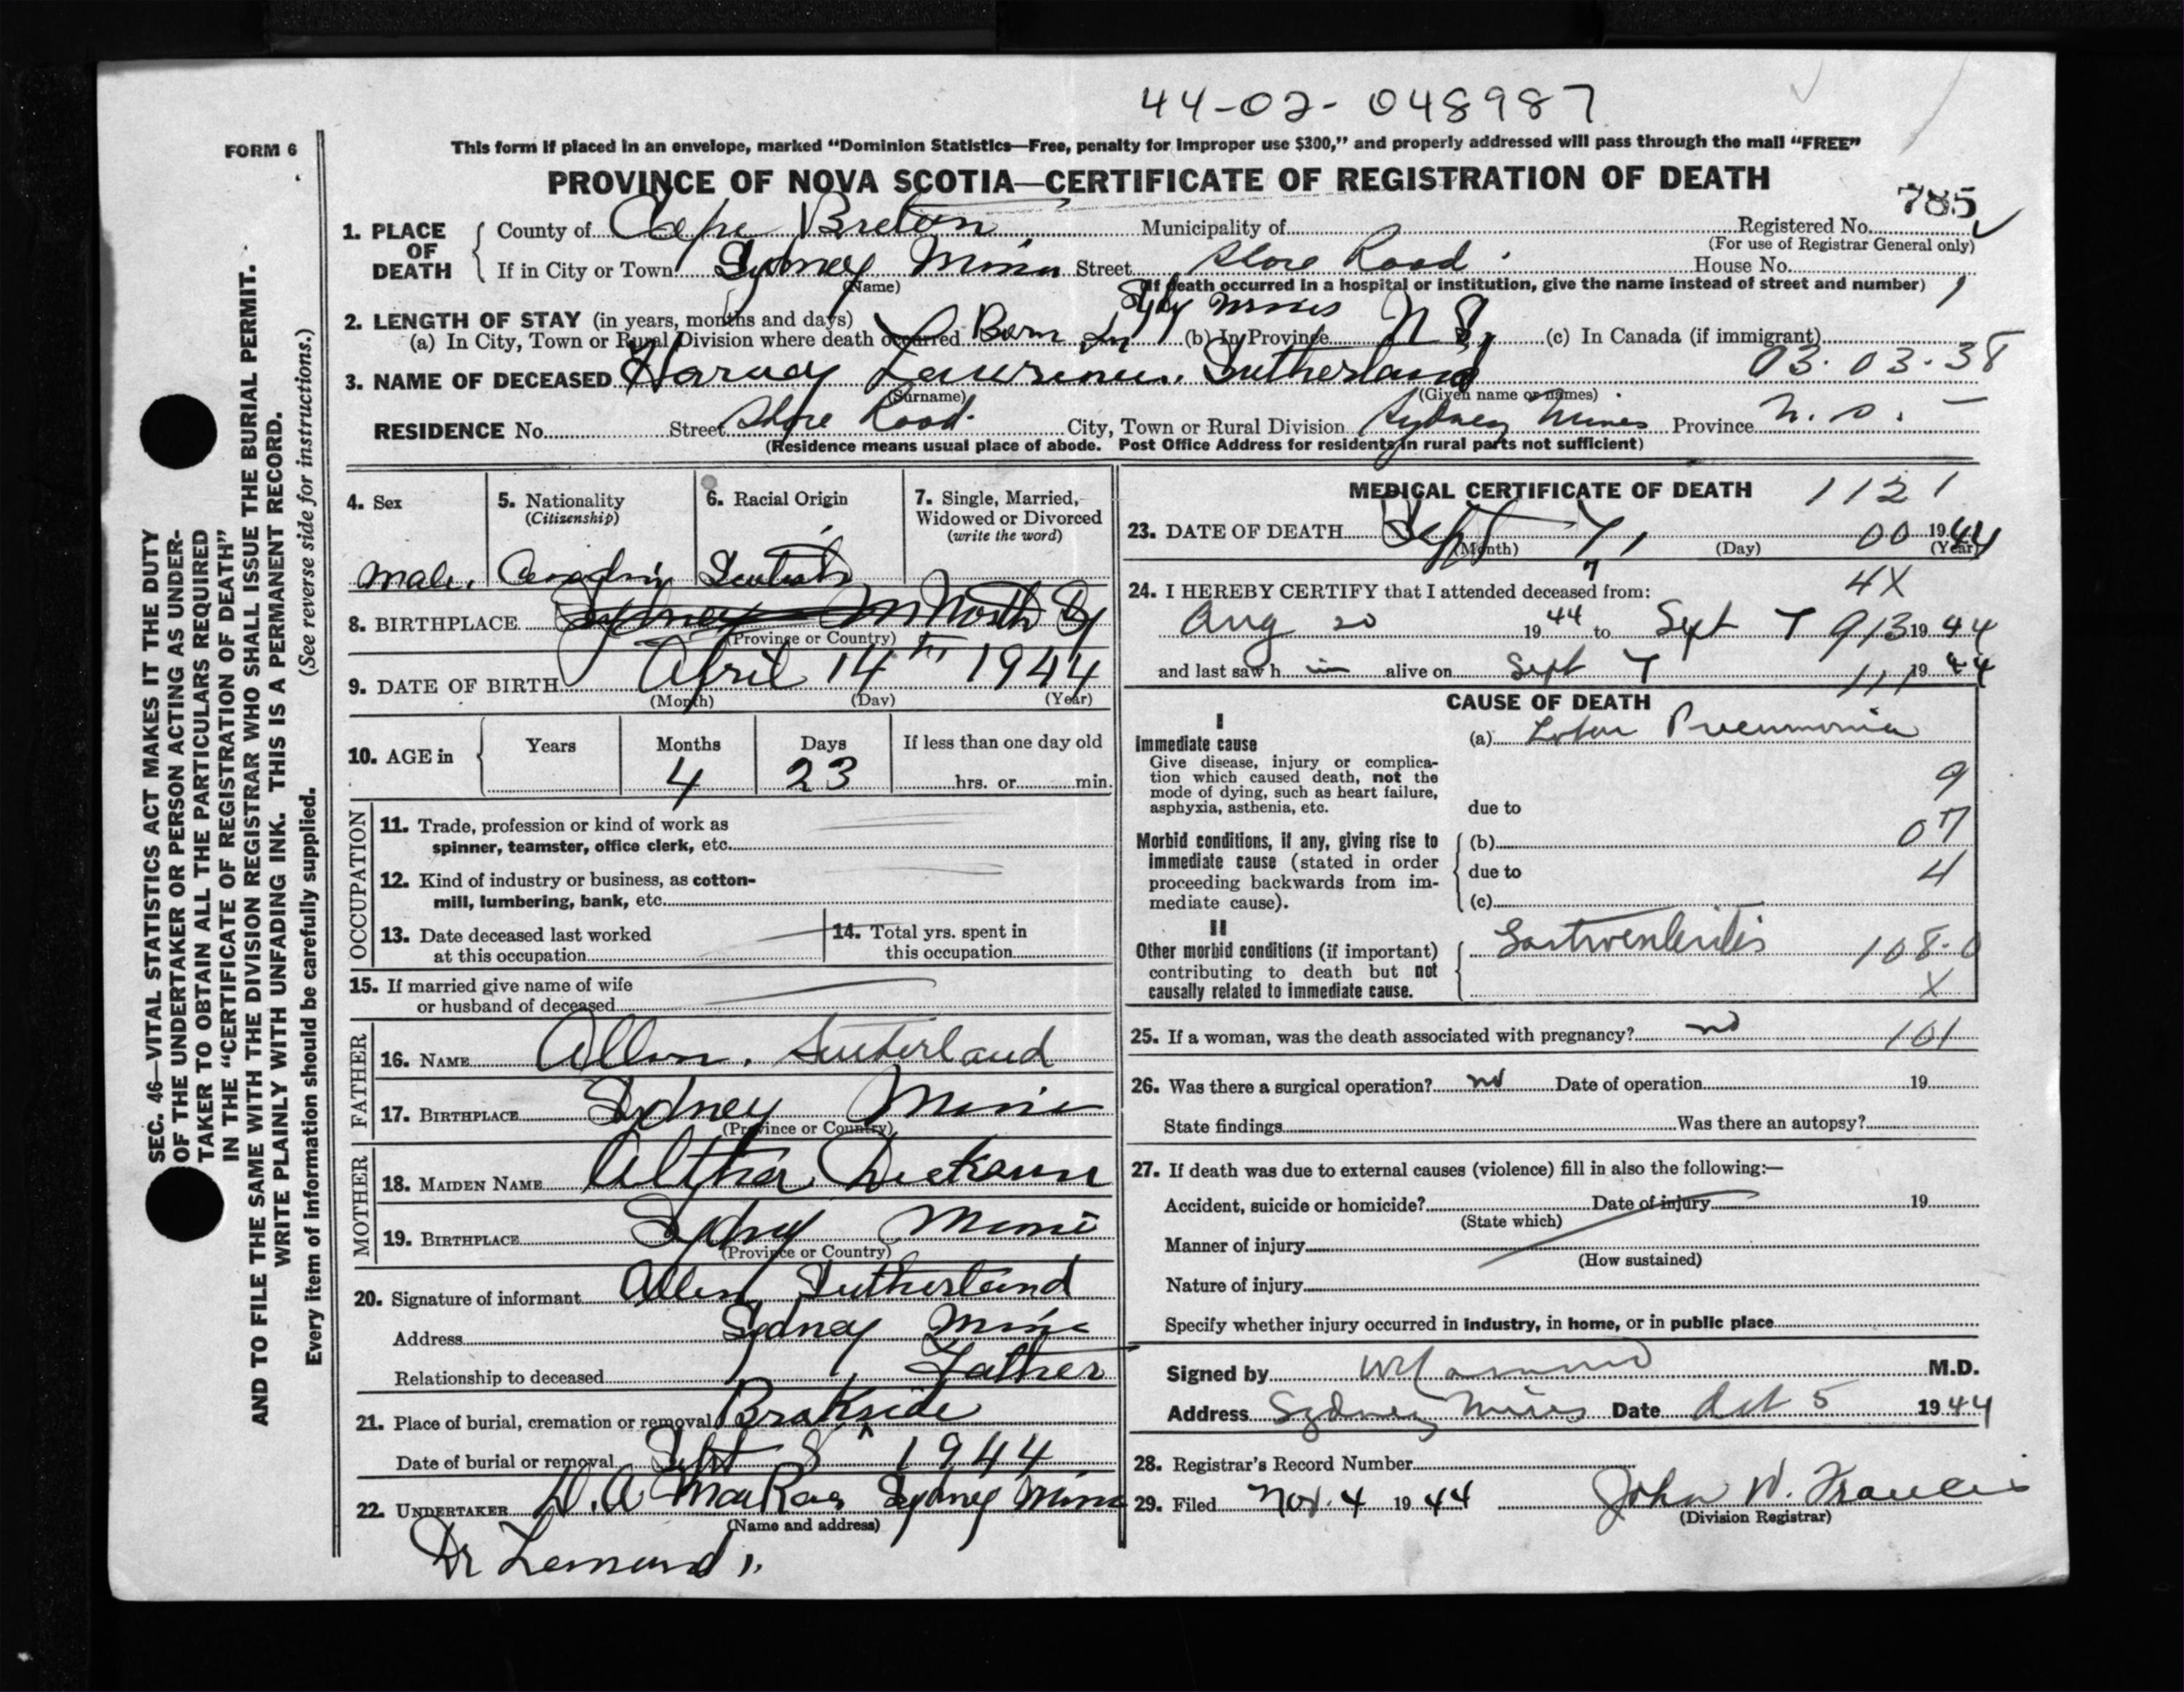 44-02-048987
FORM 6
This form if placed in an envelope, marked “Dominion Statistics—Free, penalty for improper use $300,” and properly addressed will pass through the mail “FREE”
PROVINCE OF NOVA SCOTIA—CERTIFICATE OF REGISTRATION OF DEATH
785
1. PLACE OF DEATH
County of Cape Breton Municipality of Registered No.
(For use of Registrar General only)
If in City or Town Sydney Mines Street Shore Road House No.
(Name) (If death occurred in a hospital or institution, give the name instead of street and number) 1
2. LENGTH OF STAY (in years, months and days) Sydy Mines
(a) In City, Town or Rural Division where death occurred Born In (b) In Province N S. (c) In Canada (if immigrant)
03.03.38
3. NAME OF DECEASED Harvey Lawrence Sutherland
(Surname) (Given name or names)
RESIDENCE No. Street Shore Road City, Town or Rural Division Sydney Mines Province N. S.
(Residence means usual place of abode. Post Office Address for residents in rural parts not sufficient)
4. Sex
Male.
5. Nationality
(Citizenship)
Canadian
6. Racial Origin
Scotish
7. Single, Married, Widowed or Divorced
(write the word)
8. BIRTHPLACE Sydney M North Sy
(Province or Country)
9. DATE OF BIRTH April 14th 1944
(Month) (Day) (Year)
10. AGE in
Years Months Days If less than one day old
4 23 hrs. or min.
OCCUPATION
11. Trade, profession or kind of work as
spinner, teamster, office clerk, etc.
12. Kind of industry or business, as cotton-
mill, lumbering, bank, etc.
13. Date deceased last worked
at this occupation
14. Total yrs. spent in
this occupation
15. If married give name of wife
or husband of deceased
FATHER
16. NAME Allen. Sutherland
17. BIRTHPLACE Sydney Mines
(Province or Country)
MOTHER
18. MAIDEN NAME Althea
19. BIRTHPLACE Sydney Mines
(Province or Country)
20. Signature of informant Allen Sutherland
Address Sydney Mines
Relationship to deceased Father
21. Place of burial, cremation or removal Brokside
Date of burial or removal Sept 8 1944
22. UNDERTAKER D. A MacRae Sydney Mines
(Name and address)
Dr
MEDICAL CERTIFICATE OF DEATH 1121
23. DATE OF DEATH Sept 7, 00 1944
(Month) (Day) (Year)
7 4X
24. I HEREBY CERTIFY that I attended deceased from:
Aug 20 1944 to Sept 7 913 1944
and last saw him alive on Sept 7 111 1944
CAUSE OF DEATH
I
Immediate cause
Give disease, injury or complica-
tion which caused death, not the
mode of dying, such as heart failure,
asphyxia, asthenia, etc.
(a) Lobar Pneumonia
9
due to
07
Morbid conditions, if any, giving rise to
immediate cause (stated in order
proceeding backwards from im-
mediate cause).
(b)
due to
4
(c)
II
Other morbid conditions (if important)
contributing to death but not
causally related to immediate cause.
Gastroenteritis 108.0
X
25. If a woman, was the death associated with pregnancy? no 101
26. Was there a surgical operation? no Date of operation 19
State findings Was there an autopsy?
27. If death was due to external causes (violence) fill in also the following:—
Accident, suicide or homicide? Date of injury 19
(State which)
Manner of injury
(How sustained)
Nature of injury
Specify whether injury occurred in industry, in home, or in public place
Signed by M.D.
Address Sydney Mines Date Oct 5 1944
28. Registrar’s Record Number
29. Filed Nov. 4 1944 John W. Francis
(Division Registrar)
SEC. 46—VITAL STATISTICS ACT MAKES IT THE DUTY
OF THE UNDERTAKER OR PERSON ACTING AS UNDER-
TAKER TO OBTAIN ALL THE PARTICULARS REQUIRED
IN THE “CERTIFICATE OF REGISTRATION OF DEATH”
AND TO FILE THE SAME WITH THE DIVISION REGISTRAR WHO SHALL ISSUE THE BURIAL PERMIT.
WRITE PLAINLY WITH UNFADING INK. THIS IS A PERMANENT RECORD.
Every item of information should be carefully supplied. (See reverse side for instructions.)